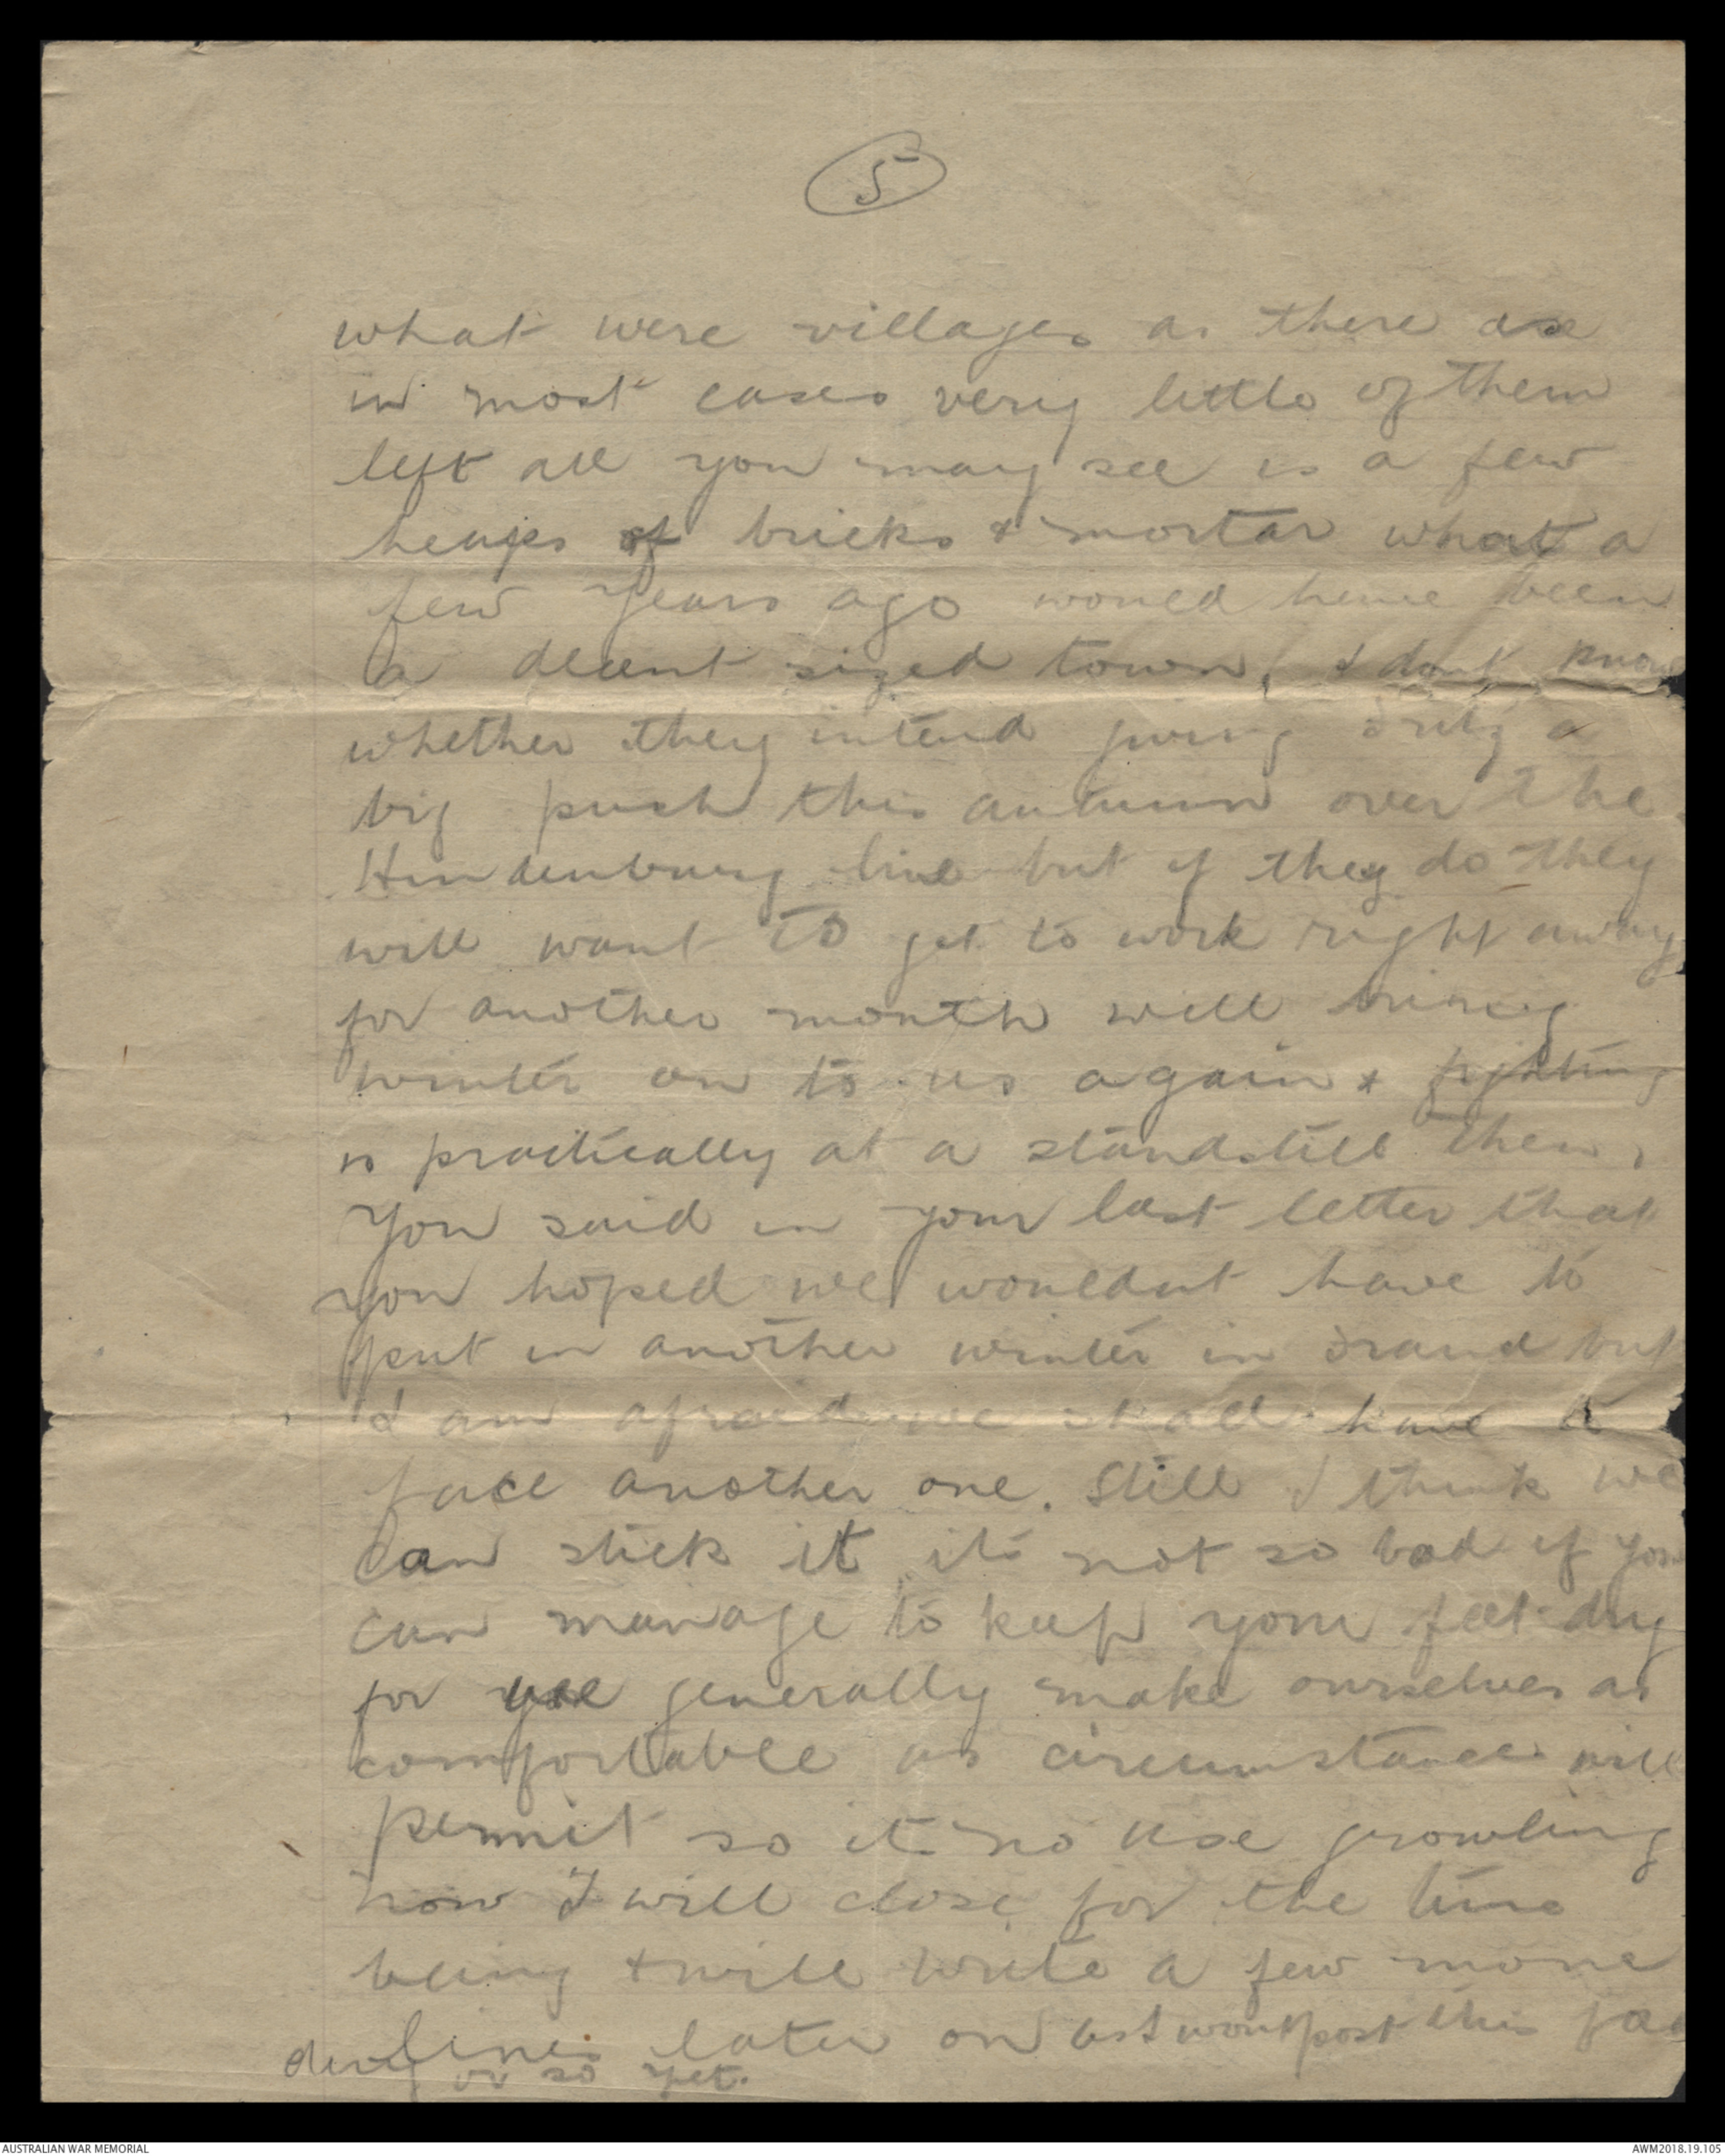 5
what were villages as there are
in most cases very little of them
left all you may see is a few
heaps of bricks & mortar what a
few years ago would have been
a decent sized town, I dont know
whether they intend giving Fritz a
big push this autumn over the
Hindenburg line but if they do they
will want to get to work right away
for another month will bring
winter on to us again & fighting
is practically at a standstill then,
You said in your last letter that
you hoped we wouldnt have to
put in another winter in but
I am afraid we shall have to
face another one. Still I think we
can stick it its not so bad if you
can manage to keep your feet dry
for we generally make ourselves as
comfortable as circumstances will
permit so its no use growling
now I will close for the time
being & will write a few more
lines later on as I wont post this for
day or so yet.
AUSTRALIAN WAR MEMORIAL
AWM2018.19.105